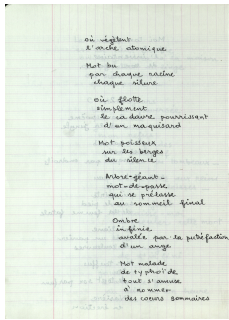 où végètent
l'arche atomique
Mot bu
par chaque racine
chaque silure
où flotte
simplement
le cadavre pourrissant
d'un maquisard
Mot poisseux
sur les berges
du silence
Arbre-géant-
mot-de-passe
qui se prélasse
au sommeil final
Ombre
infénie
avalée par la putréfaction
d'un ange
Mot malade
de typhoïde
tout s'amuse
à nommer
des coeurs sommaires